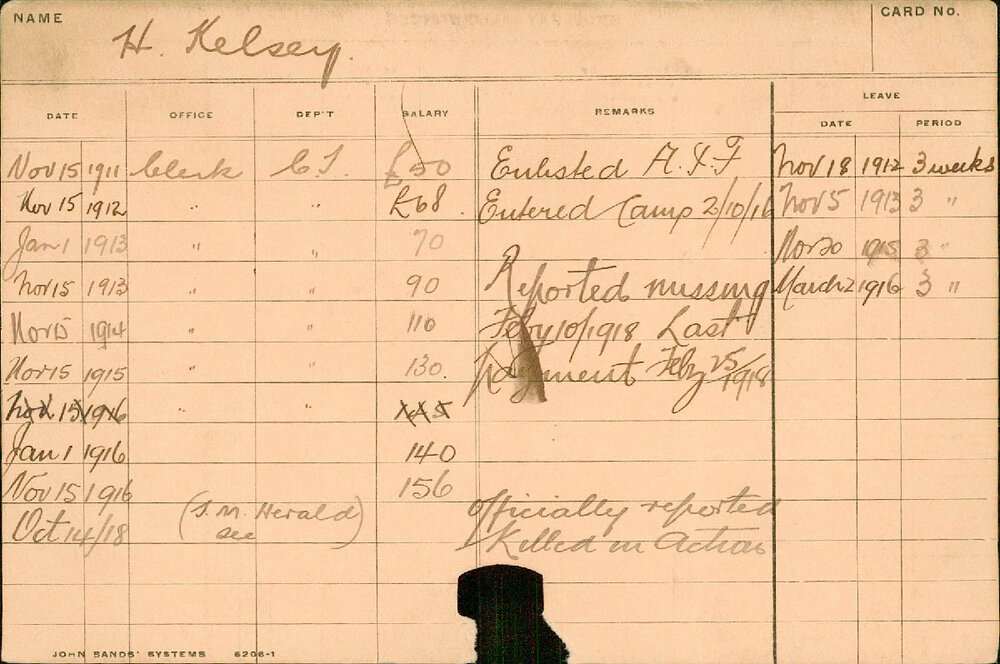 NAME H. Kelsey. CARD No.
LEAVE
DATE OFFICE DEP'T SALARY REMARKS DATE PERIOD
Nov 15 1911 Clerk £50 Enlisted A.I.F Nov 18 1912 3 weeks
Nov 15 1912 " " £68 Entered Camp 2/10/16 Nov 5 1913 3 "
Jan 1 1913 " " 70 Nov 20 1915 3 "
Nov 15 1913 " " 90 Reported missing March 2 1916 3 "
Nov 15 1914 " " 110 Feby 10/1918 Last
Nov 15 1915 " " 130 payment Feby 25/1918
Nov 15 1916 " "
Jan 1 1916 140
Nov 15 1916 156
Oct 14/18 (S.M. Herald) officially reported
see Killed in Action
JOHN SANDS' SYSTEMS 6206-1